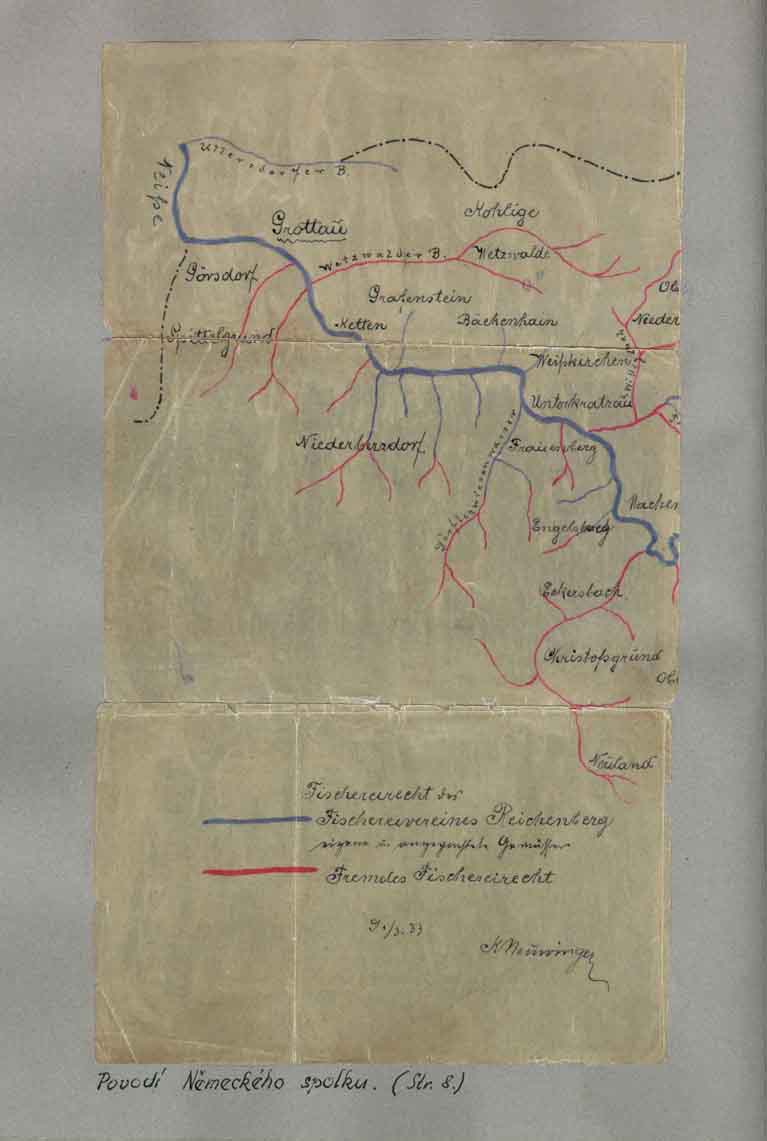 Neiße
Ullersdorfer B.
Kohlige
Grottau
Wetzwalder B.
Wetzwalde
Görsdorf
Grafenstein
Ketten
Bäckenhain
Nieder
Spittelgrund
Weißkirchen
Unterkratzau
Niederberzdorf
Frauenberg
Görsbachwiesenwasser
Machen
Engelsberg
Eckersbach
Christofsgrund
Ob
Neuland
Fischereirecht des
Fischereivereines Reichenberg
eigene u. angepachtete Gewässer
Fremdes Fischereirecht
K Neuwinger
Povodí Německého spolku. (Str. 8.)